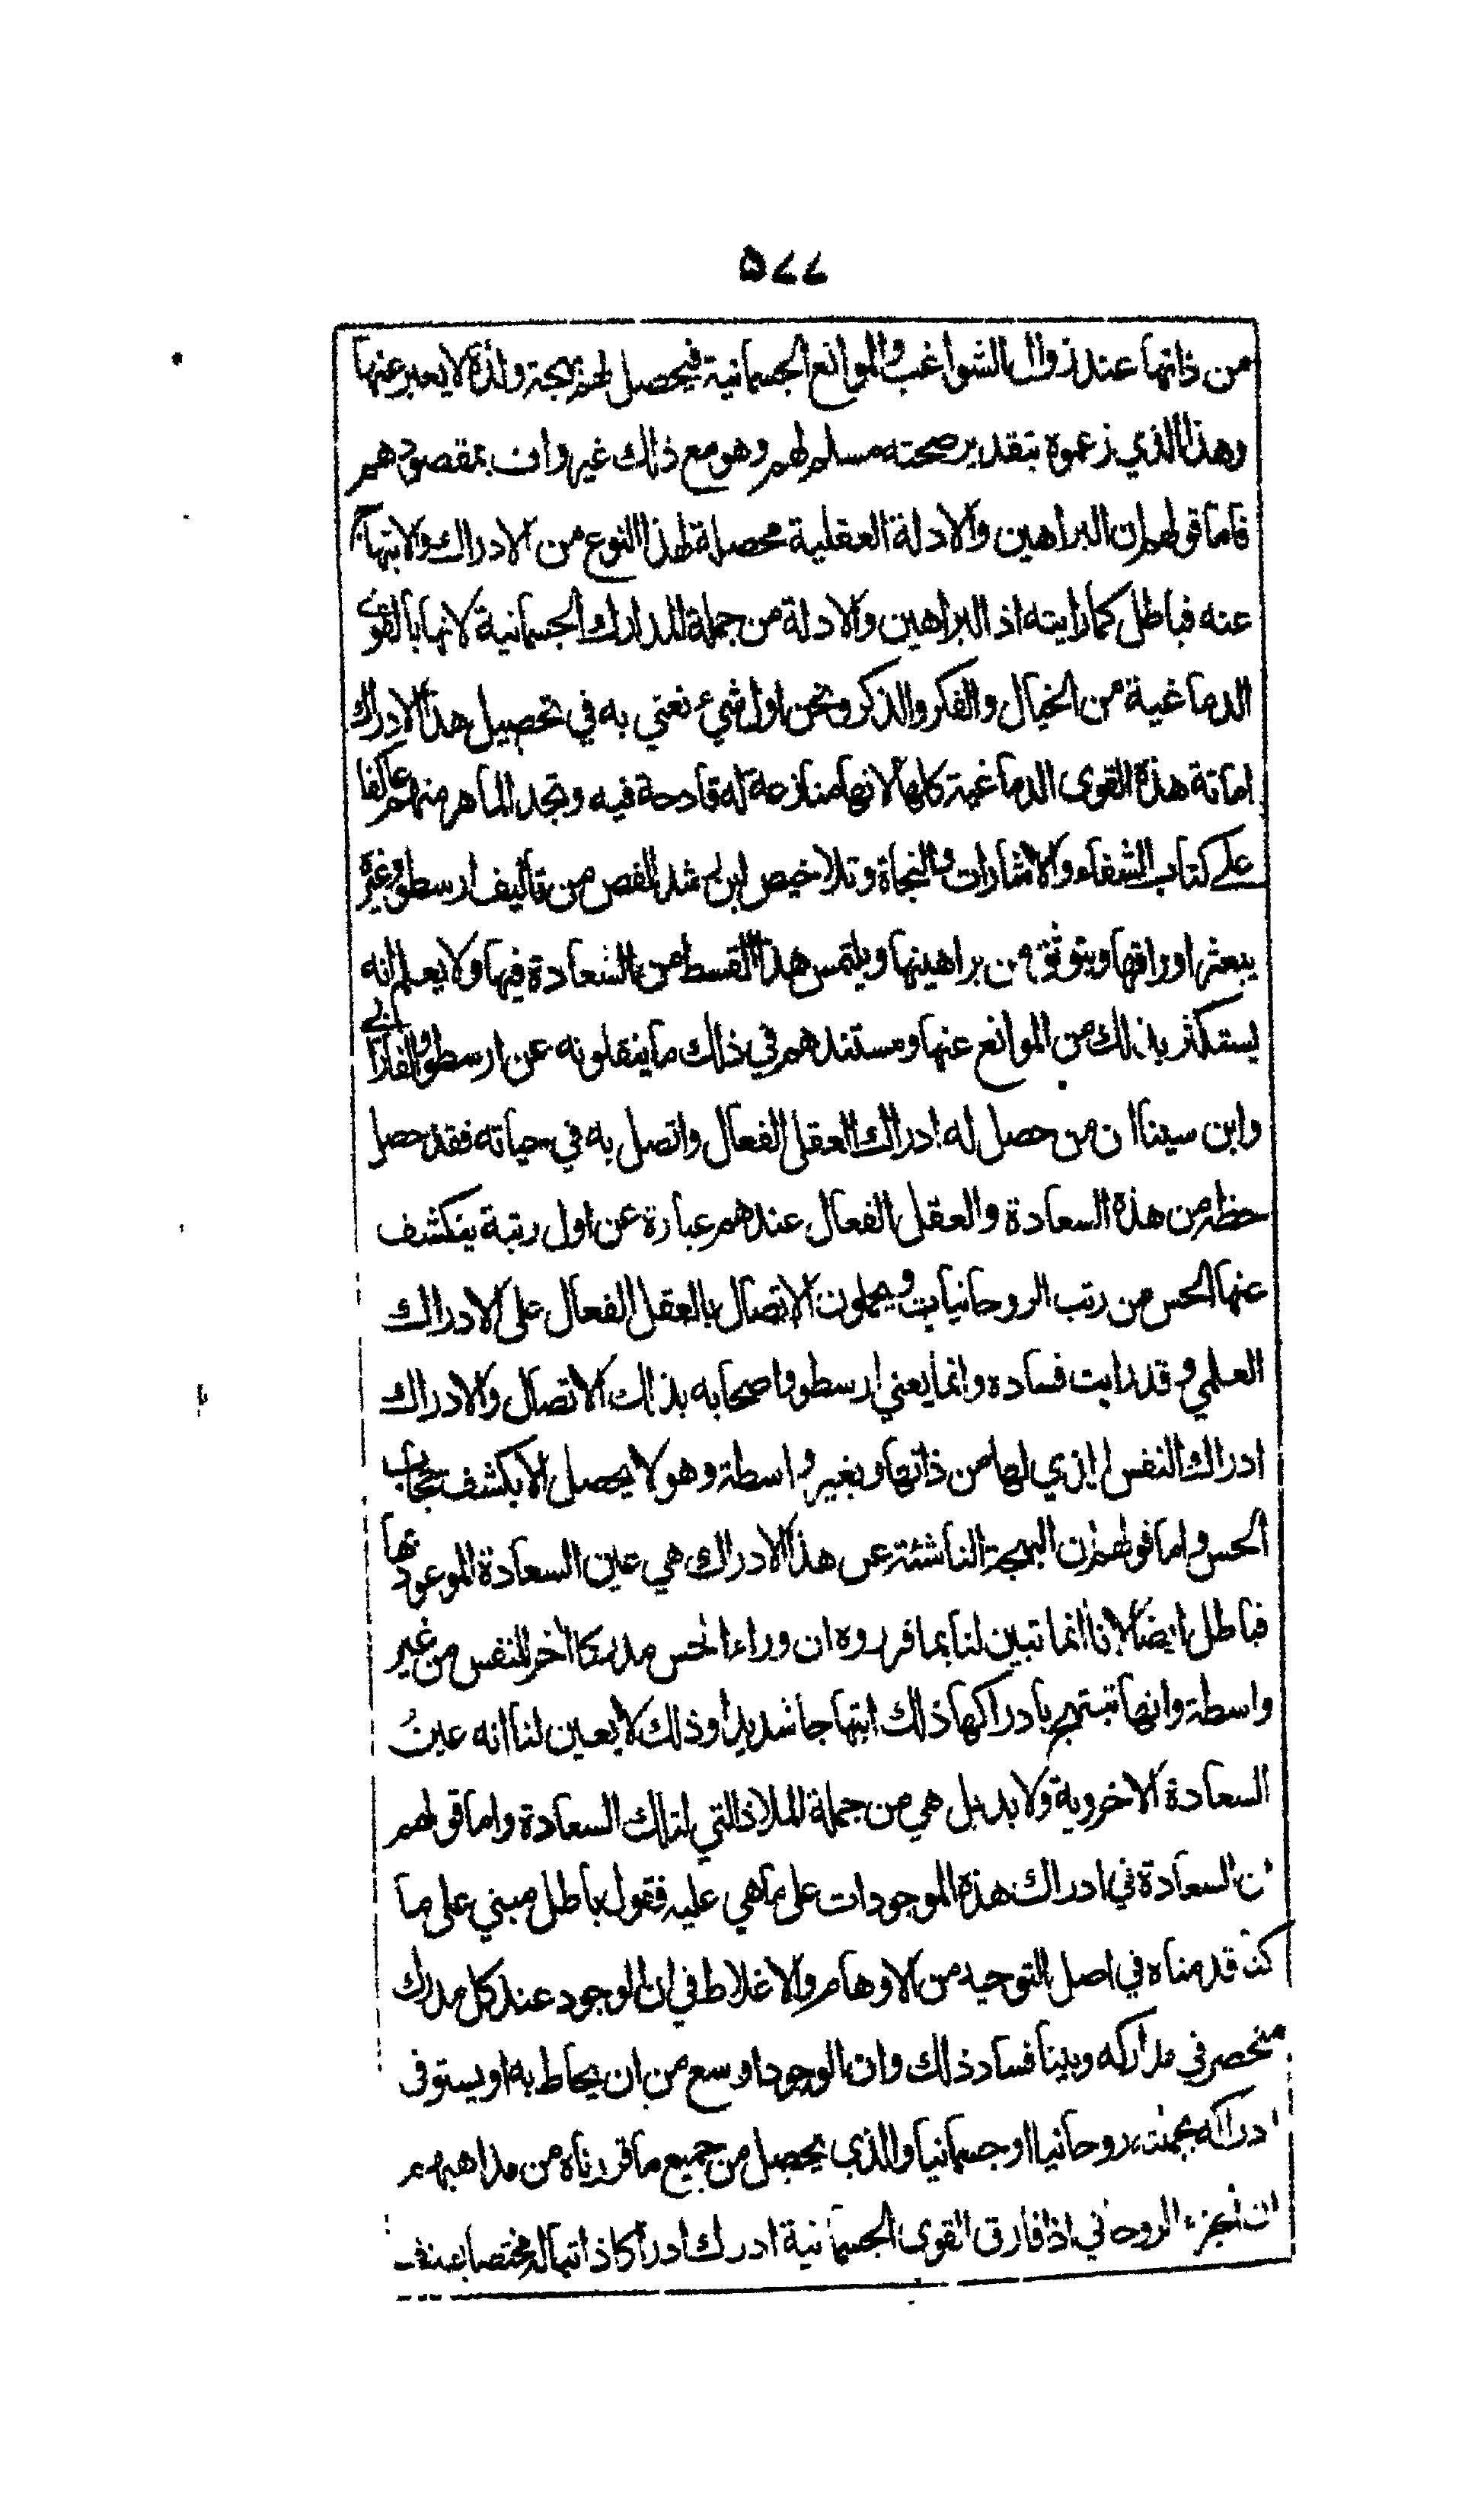 ٥٧٧
من ذاتها عند زوال الشواغب والموانع الجسمانية فيحصل لهم بهجة ولذة لا يعبر عنها
وهذا الذي زعموه بتقدير صحته مسلم لهم وهو مع ذلك غير واف بمقصودهم
فاما قولهم ان البراهين والادلة العقلية محصلة لهذا النوع من الادراك والابتهاج
عنه فباطل كما رايته اذ البراهين والادلة من جملة المدارك الجسمانية لانها بالقوى
الدماغية من الخيال والفكر والذكر ونحن اول شيء نعني به في تحصيل هذا الادراك
اماتة هذه القوى الدماغية كلها لانها منازعة له قادحة فيه وتجد الماهر منهم عاكفا
على كتاب الشفاء والاشارات والنجاة وتلاخيص ابن رشد للفص من تاليف ارسطو وغيره
يبعثر اوراقها ويتوثق من براهينها ويلتمس هذا القسط من السعادة فيها ولا يعلم انه
يستكثر بذلك من الموانع عنها ومستندهم في ذلك ما ينقلونه عن ارسطو والفارابي
وابن سينا ان من حصل له ادراك العقل الفعال واتصل به في حياته فقد حصل
حظه من هذه السعادة والعقل الفعال عندهم عبارة عن اول رتبة ينكشف
عنها الحس من رتب الروحانيات ويحملون الاتصال بالعقل الفعال على الادراك
العلمي وقد رايت فساده وانما يعني ارسطو واصحابه بذلك الاتصال والادراك
ادراك النفس الذي لها من ذاتها وبغير واسطة وهو لا يحصل الا بكشف حجاب
الحس واما قولهم ان البهجة الناشئة عن هذا الادراك هي عين السعادة الموعود بها
فباطل ايضا لانا انما تبين لنا بما قرروه ان وراء الحس مدركا اخر للنفس من غير
واسطة وانها تبتهج بادراكها ذلك ابتهاجا شديدا وذلك لا يعين لنا انه عين
السعادة الاخروية ولا بد بل هي من جملة الملاذ التي لتلك السعادة واما قولهم
ان السعادة في ادراك هذه الموجودات على ما هي عليه فقول باطل مبني على ما
كنا قدمناه في اصل التوحيد من الاوهام والاغلاط في ان الوجود عند كل مدرك
منحصر في مداركه وبينا فساد ذلك وان الوجود اوسع من ان يحاط به او يستوفى
ادراكه بجملته روحانيا او جسمانيا والذي يحصل من جميع ما قررناه من مذاهبهم
ان الجزء الروحاني اذا فارق القوى الجسمانية ادرك ادراكا ذاتيا له مختصا بصنف